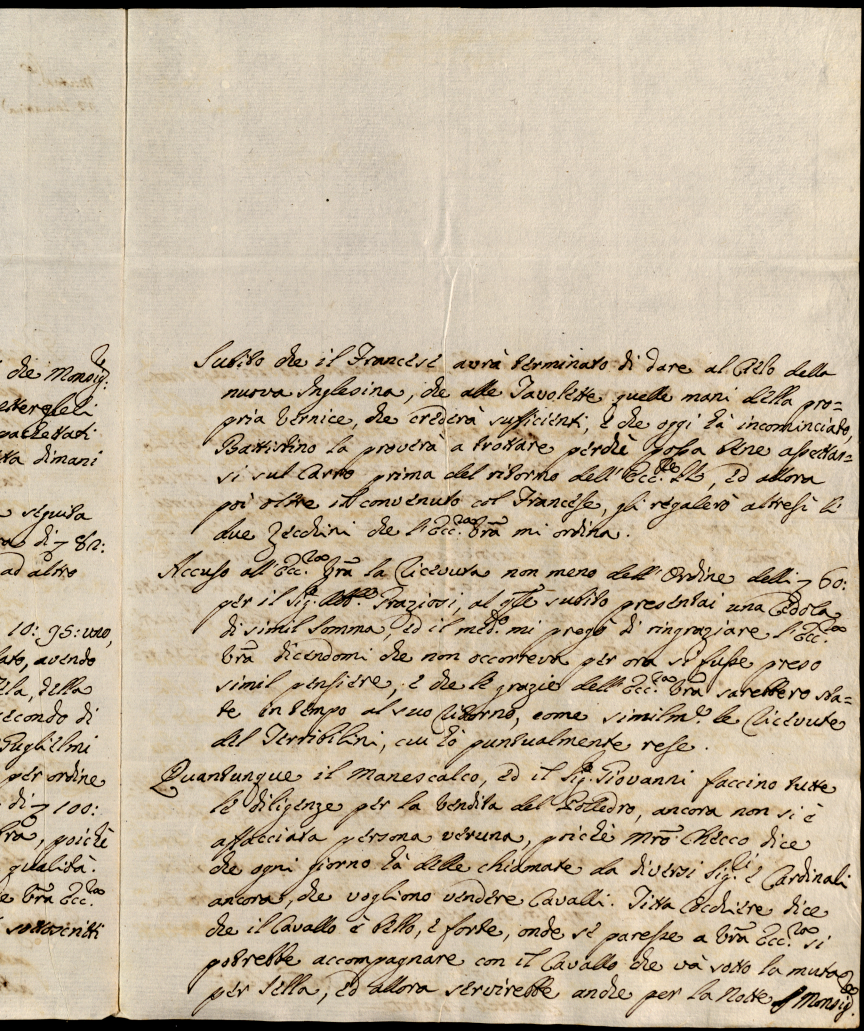 che Monsig.re
pacchettati
ta dimani
seguita
di 7 82:
ad altro
10: 95: uno,
ato, avendo
ela, della
secondo di
Guglielmi
per ordine
di 7 100:
fra, poiché
qualità.
e Vrã Ecc.za
sottoscritti
Subito che il Francese avrà terminato di dare al Cielo della
nuova Inglesina, che alle Tavolette quelle mani della pro=
pria vernice, che crederà sufficienti, e che oggi hà incominciato,
Battistino la proverà a trottare perchè possa bene assettar=
si sul Carro prima del ritorno dell'Ecc.za Vrã, ed allora
poi oltre il convenuto col Francese, gli regalerò altresì li
due Zecchini che l'Ecc.za Vrã mi ordina.
Accuso all'Ecc.za Vrã la ricevuta non meno dell'Ordine delli 7 60:
per il Sig. Abb.e Graziosi, al qle subito presentai una Cedola
di simil somma, ed il med.o mi pregò di ringraziare l'Ecc.za
Vrã dicendomi che non occorreva per ora si fusse preso
simil pensiere, e che le grazie dell'Ecc.za Vrã sarebbero sta=
te in tempo al suo ritorno, come similm.e le ricevute
del Terribilini, cui hò puntualmente rese.
Quantunque il Manescalco, ed il Sig. Giovanni faccino tutte
le diligenze per la vendita del Polledro, ancora non si è
affacciata persona veruna, poichè Mrõ Checco dice
che ogni giorno hà delle chiamate da diversi Sig.ri e Cardinali
ancora, che vogliono vendere Cavalli. Titta Cocchiere dice
che il Cavallo è bello, e forte, onde se paresse a Vrã Ecc.za si
potrebbe accompagnare con il Cavallo che và sotto la muta
per sella, ed allora servirebbe anche per la Notte Monsig.